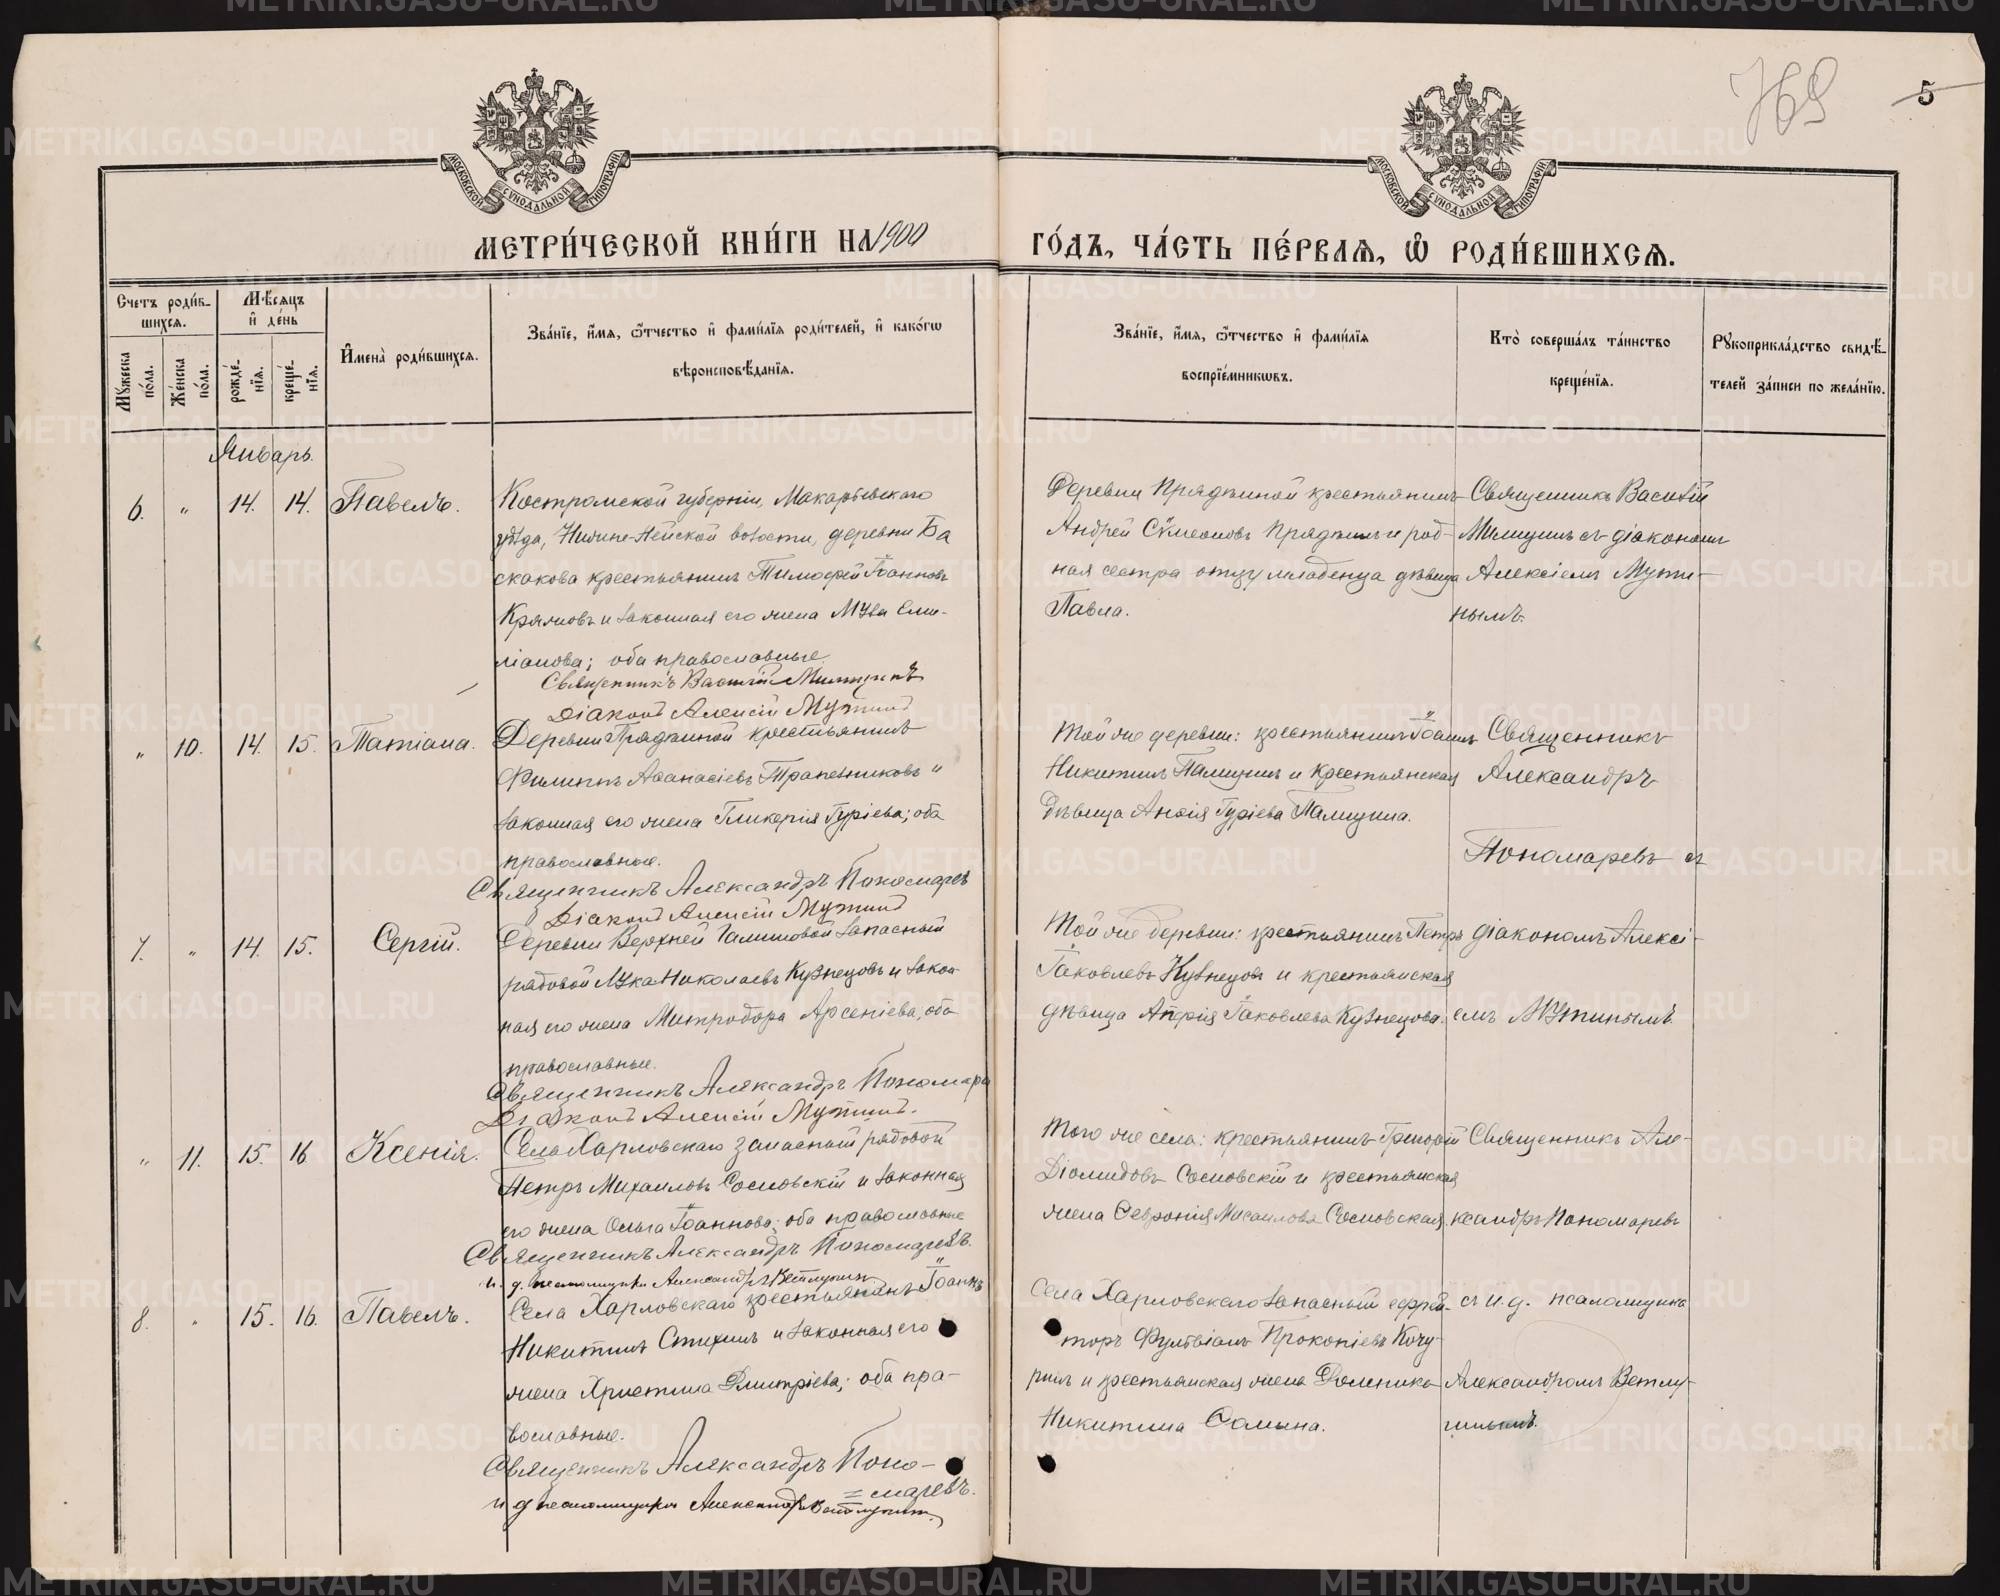 769
5
МОСКОВСКОЙ СУНОДАЛЬНОЙ ТИПОГРАФІИ
МОСКОВСКОЙ СУНОДАЛЬНОЙ ТИПОГРАФІИ
МЕТРИ́ЧЕСКОЙ КНИ́ГИ НА 1900 ГО́ДЪ, ЧА́СТЬ ПЕ́РВАЯ, Ѡ РОДИ́ВШИХСЯ.
Счетъ роди́в-
шихся.
Мѣ́сяцъ
и҆ де́нь
Мꙋ́жеска
по́ла.
Же́нска
по́ла.
рожде́-
нїя.
креще́-
нїя.
И҆мена̀ роди́вшихся.
Зва́нїе, и҆́мя, ѻ҆́тчество и҆ фами́лїя роди́телей, и҆ како́гѡ
вѣроисповѣ́данїя.
Зва́нїе, и҆́мя, ѻ҆́тчество и҆ фами́лїя
воспрїе́мникѡвъ.
Кто̀ соверша́лъ та́инство
креще́нїя.
Рꙋкоприкла́дство свидѣ́-
телей за́писи по жела́нїю.
Январь.
6. „ 14. 14. Павелъ.
Костромской губерніи, Макарьевскаго
уѣзда, Нижне-Нейской волости, деревни Ба
скакова крестьянинъ Тимофей Іоанновъ
и законная его жена Еми-
ліанова; оба православные.
Священникъ Василій Милицинъ
Діаконъ Алексій Мутинъ
Деревни Прядкиной крестьянинъ
Андрей Сѵмеоновъ Прядкинъ и род-
ная сестра отцу младенца дѣвица
Павла.
Священникъ Василій
Милицинъ съ діакономъ
Алексіемъ Мути-
нымъ.
„ 10. 14. 15. Татіана.
Деревни Прядкиной крестьянинъ
Филиппъ Аѳанасіевъ Трапезниковъ и
законная его жена Гликерія Гуріева; оба
православные.
Священникъ Александръ Пономаревъ
Діаконъ Алексій Мутинъ
Той же деревни: крестьянинъ Іоаннъ
Никитинъ Палицинъ и крестьянская
дѣвица Анѳія Гуріева Палицина.
Священникъ
Александръ
Пономаревъ съ
7. „ 14. 15. Сергій.
Деревни Верхней Галишовой запасный
рядовой Лука Николаевъ Кузнецовъ и закон-
ная его жена Митродора Арсеніева, оба
православные.
Священникъ Александръ Пономарев
Діаконъ Алексій Мутинъ.
Той же деревни: крестьянинъ Петръ
Іаковлевъ Кузнецовъ и крестьянская
дѣвица Іаковлева Кузнецова.
діакономъ Алексі-
емъ Мутинымъ.
„ 11. 15. 16 Ксенія.
Села Харловскаго запасный рядовой
Петръ Михаиловъ Сосновскій и законная
его жена Ольга Іоаннова; оба православные
Священникъ Александръ Пономаревъ.
и. д. псаломщика Александръ Ветлугинъ
Того же села: крестьянинъ Григорій
Діомидовъ Сосновскій и крестьянская
жена Февронія Михаилова Сосновская.
Священникъ Але-
ксандръ Пономаревъ
8. „ 15. 16. Павелъ.
Села Харловскаго крестьянинъ Іоаннъ
Никитинъ Стихинъ и законная его
жена Христина Димитріева; оба пра-
вославные.
Священникъ Александръ Поно-
=маревъ.
и д псаломщика Александръ Ветлугин.
Села Харловскаго запасный ефрей-
торъ Флавіанъ Прокопіевъ Кочу-
ринъ и крестьянская жена
Никитина Сомына.
съ и. д. псаломщика
Александромъ Ветлу-
гинымъ.
METRIKI.GASO-URAL.RU